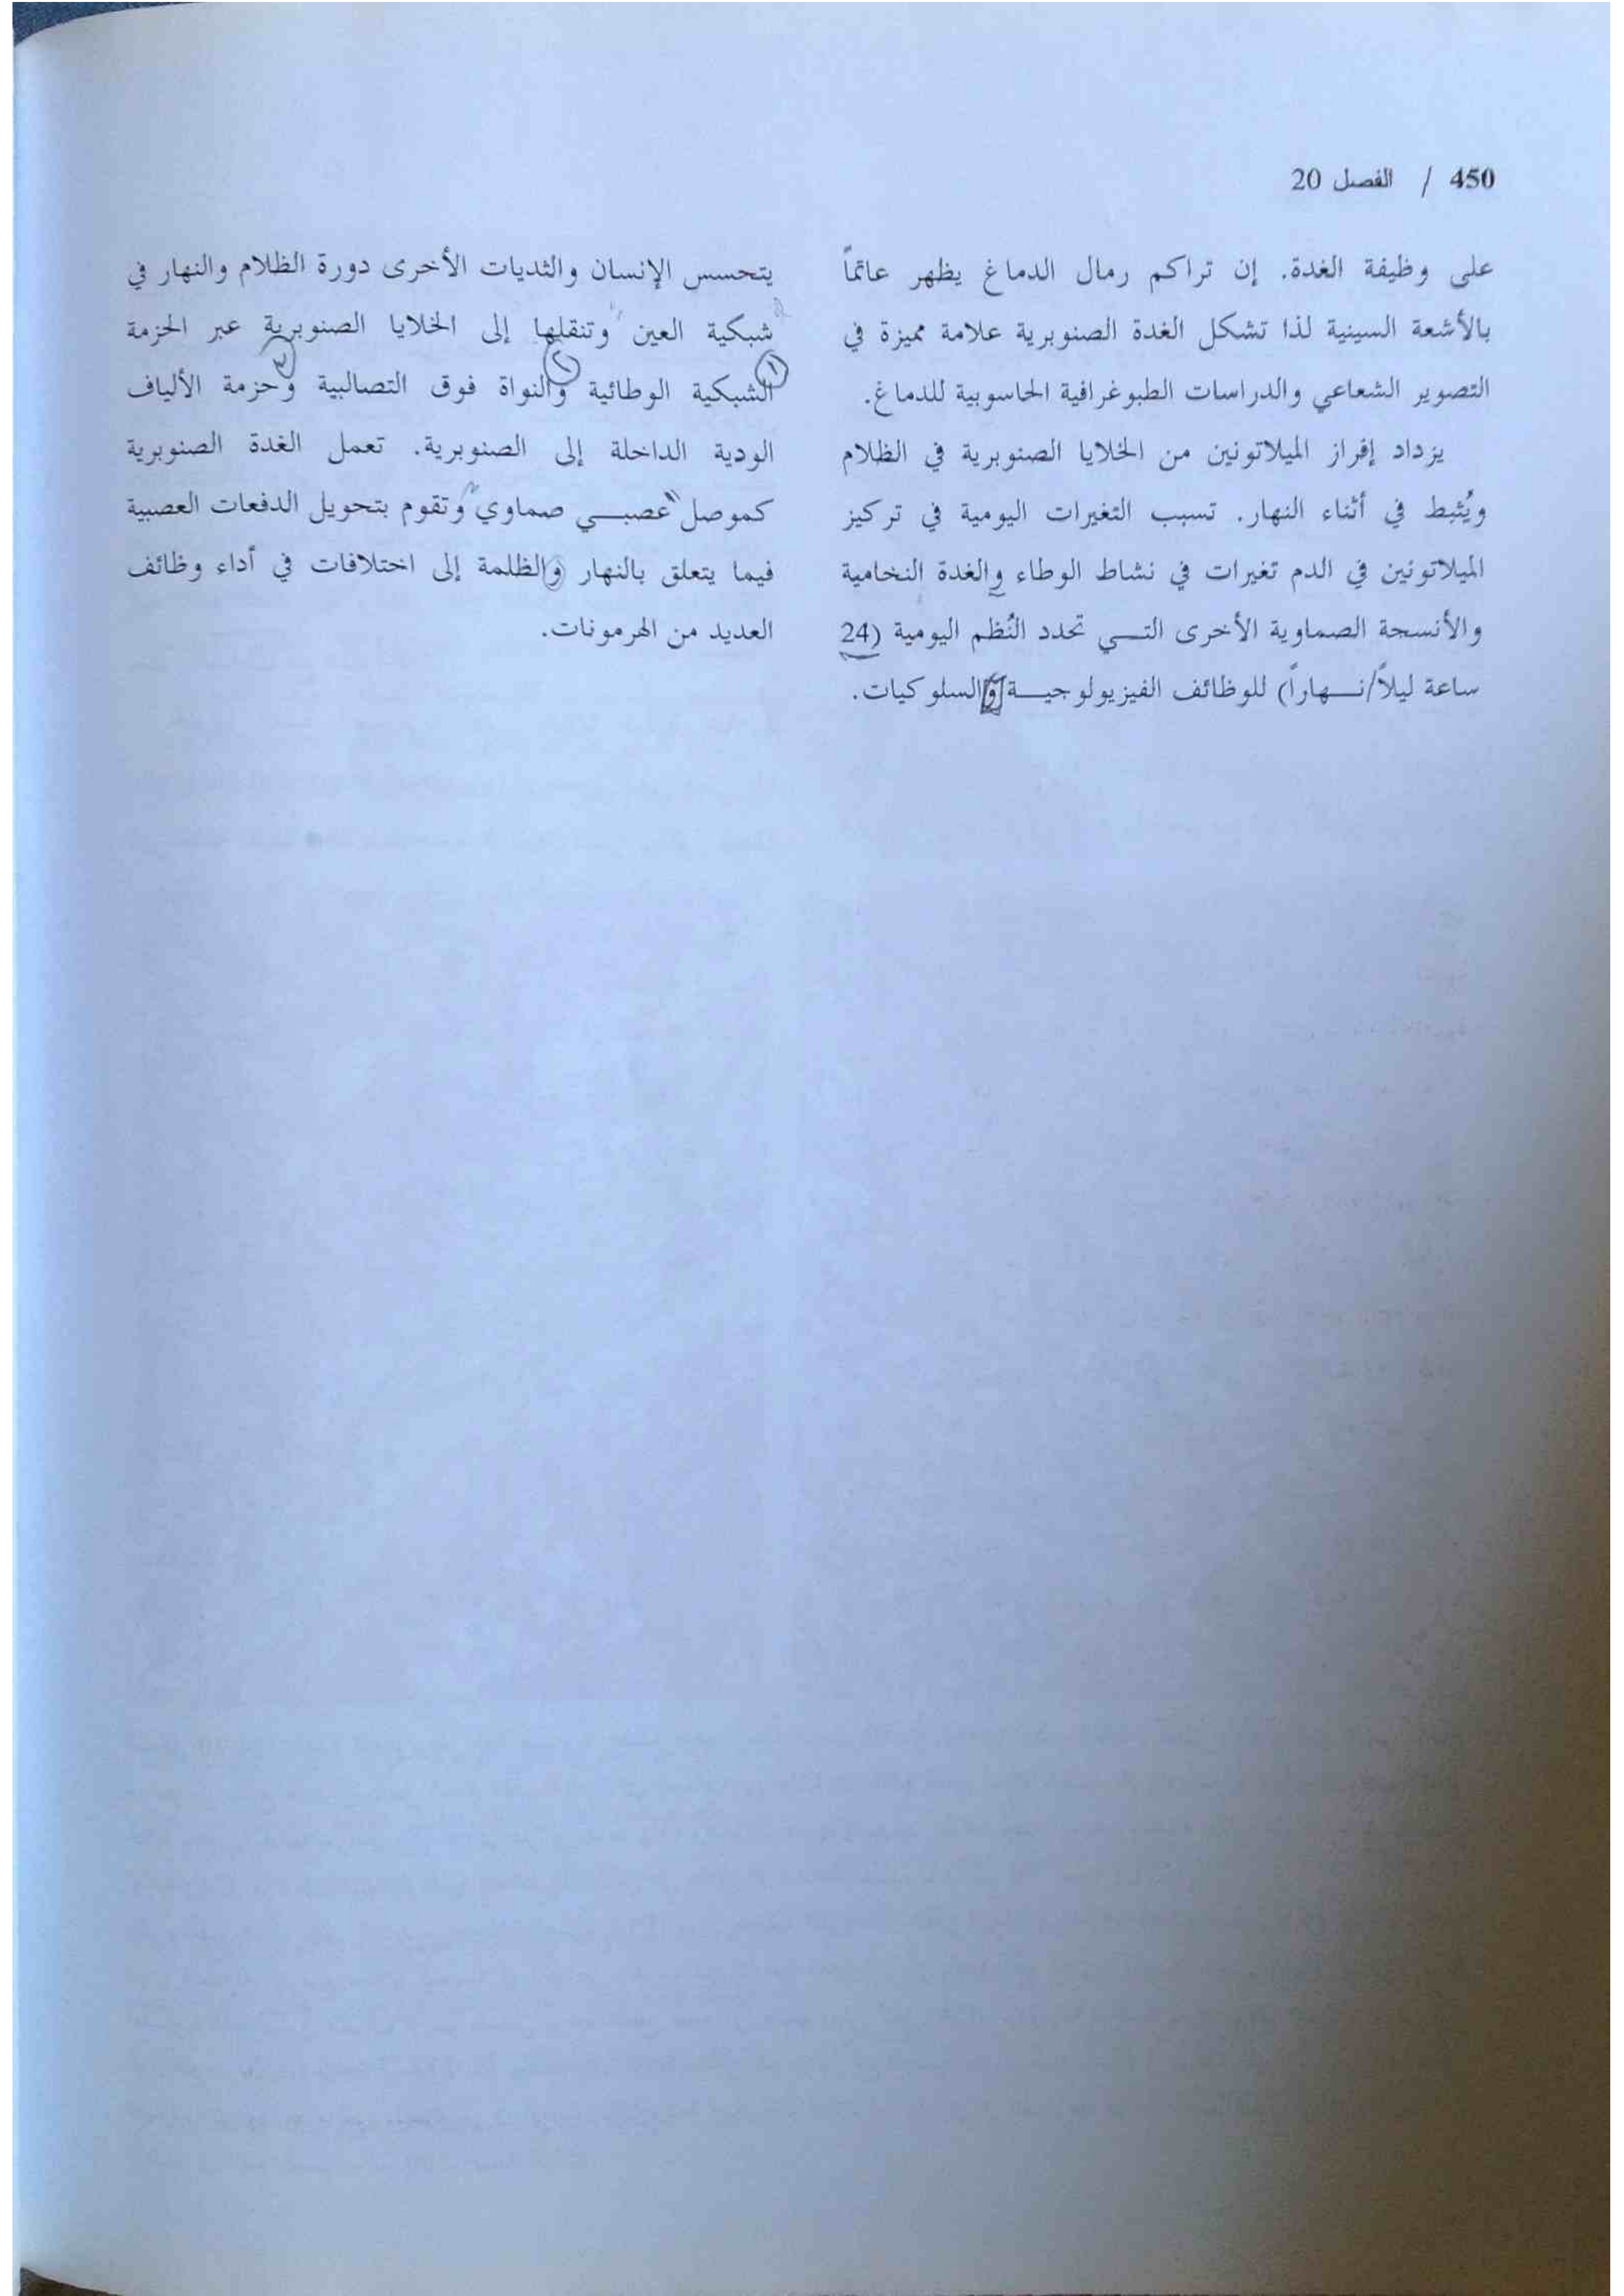 450 / الفصل 20
على وظيفة الغدة. إن تراكم رمال الدماغ يظهر عاتماً
بالأشعة السينية لذا تشكل الغدة الصنوبرية علامة مميزة في
التصوير الشعاعي والدراسات الطبوغرافية الحاسوبية للدماغ.
يزداد إفراز الميلاتونين من الخلايا الصنوبرية في الظلام
ويُثبط في أثناء النهار. تسبب التغيرات اليومية في تركيز
الميلاتونين في الدم تغيرات في نشاط الوطاء والغدة النخامية
والأنسجة الصماوية الأخرى التـي تحدد النُظم اليومية (24
ساعة ليلاً/نـهاراً) للوظائف الفيزيولوجيـة والسلوكيات.
يتحسس الإنسان والثديات الأخرى دورة الظلام والنهار في
شبكية العين وتنقلها إلى الخلايا الصنوبرية عبر الحزمة
الشبكية الوطائية والنواة فوق التصالبية وحزمة الألياف
الودية الداخلة إلى الصنوبرية. تعمل الغدة الصنوبرية
كموصل عصبـي صماوي وتقوم بتحويل الدفعات العصبية
فيما يتعلق بالنهار والظلمة إلى اختلافات في أداء وظائف
العديد من الهرمونات.